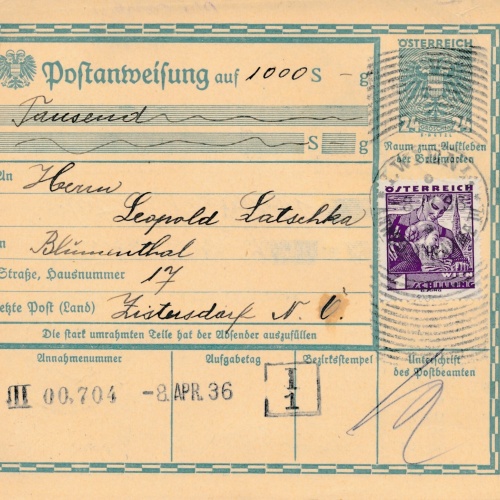 Postanweisung auf 1000 S – g
ÖSTERREICH
24 24
Tausend
S g
Raum zum Aufkleben
der Briefmarken
An Herrn
Leopold Latschka
ÖSTERREICH
WIEN
1 SCHILLING
in Blumenthal
Straße, Hausnummer 17
Letzte Post (Land) Zistersdorf N. Ö.
Die stark umrahmten Teile hat der Absender auszufüllen
Annahmenummer Aufgabetag Bezirksstempel Unterschrift
des Postbeamten
III 00,704 -8. APR. 36 I
1